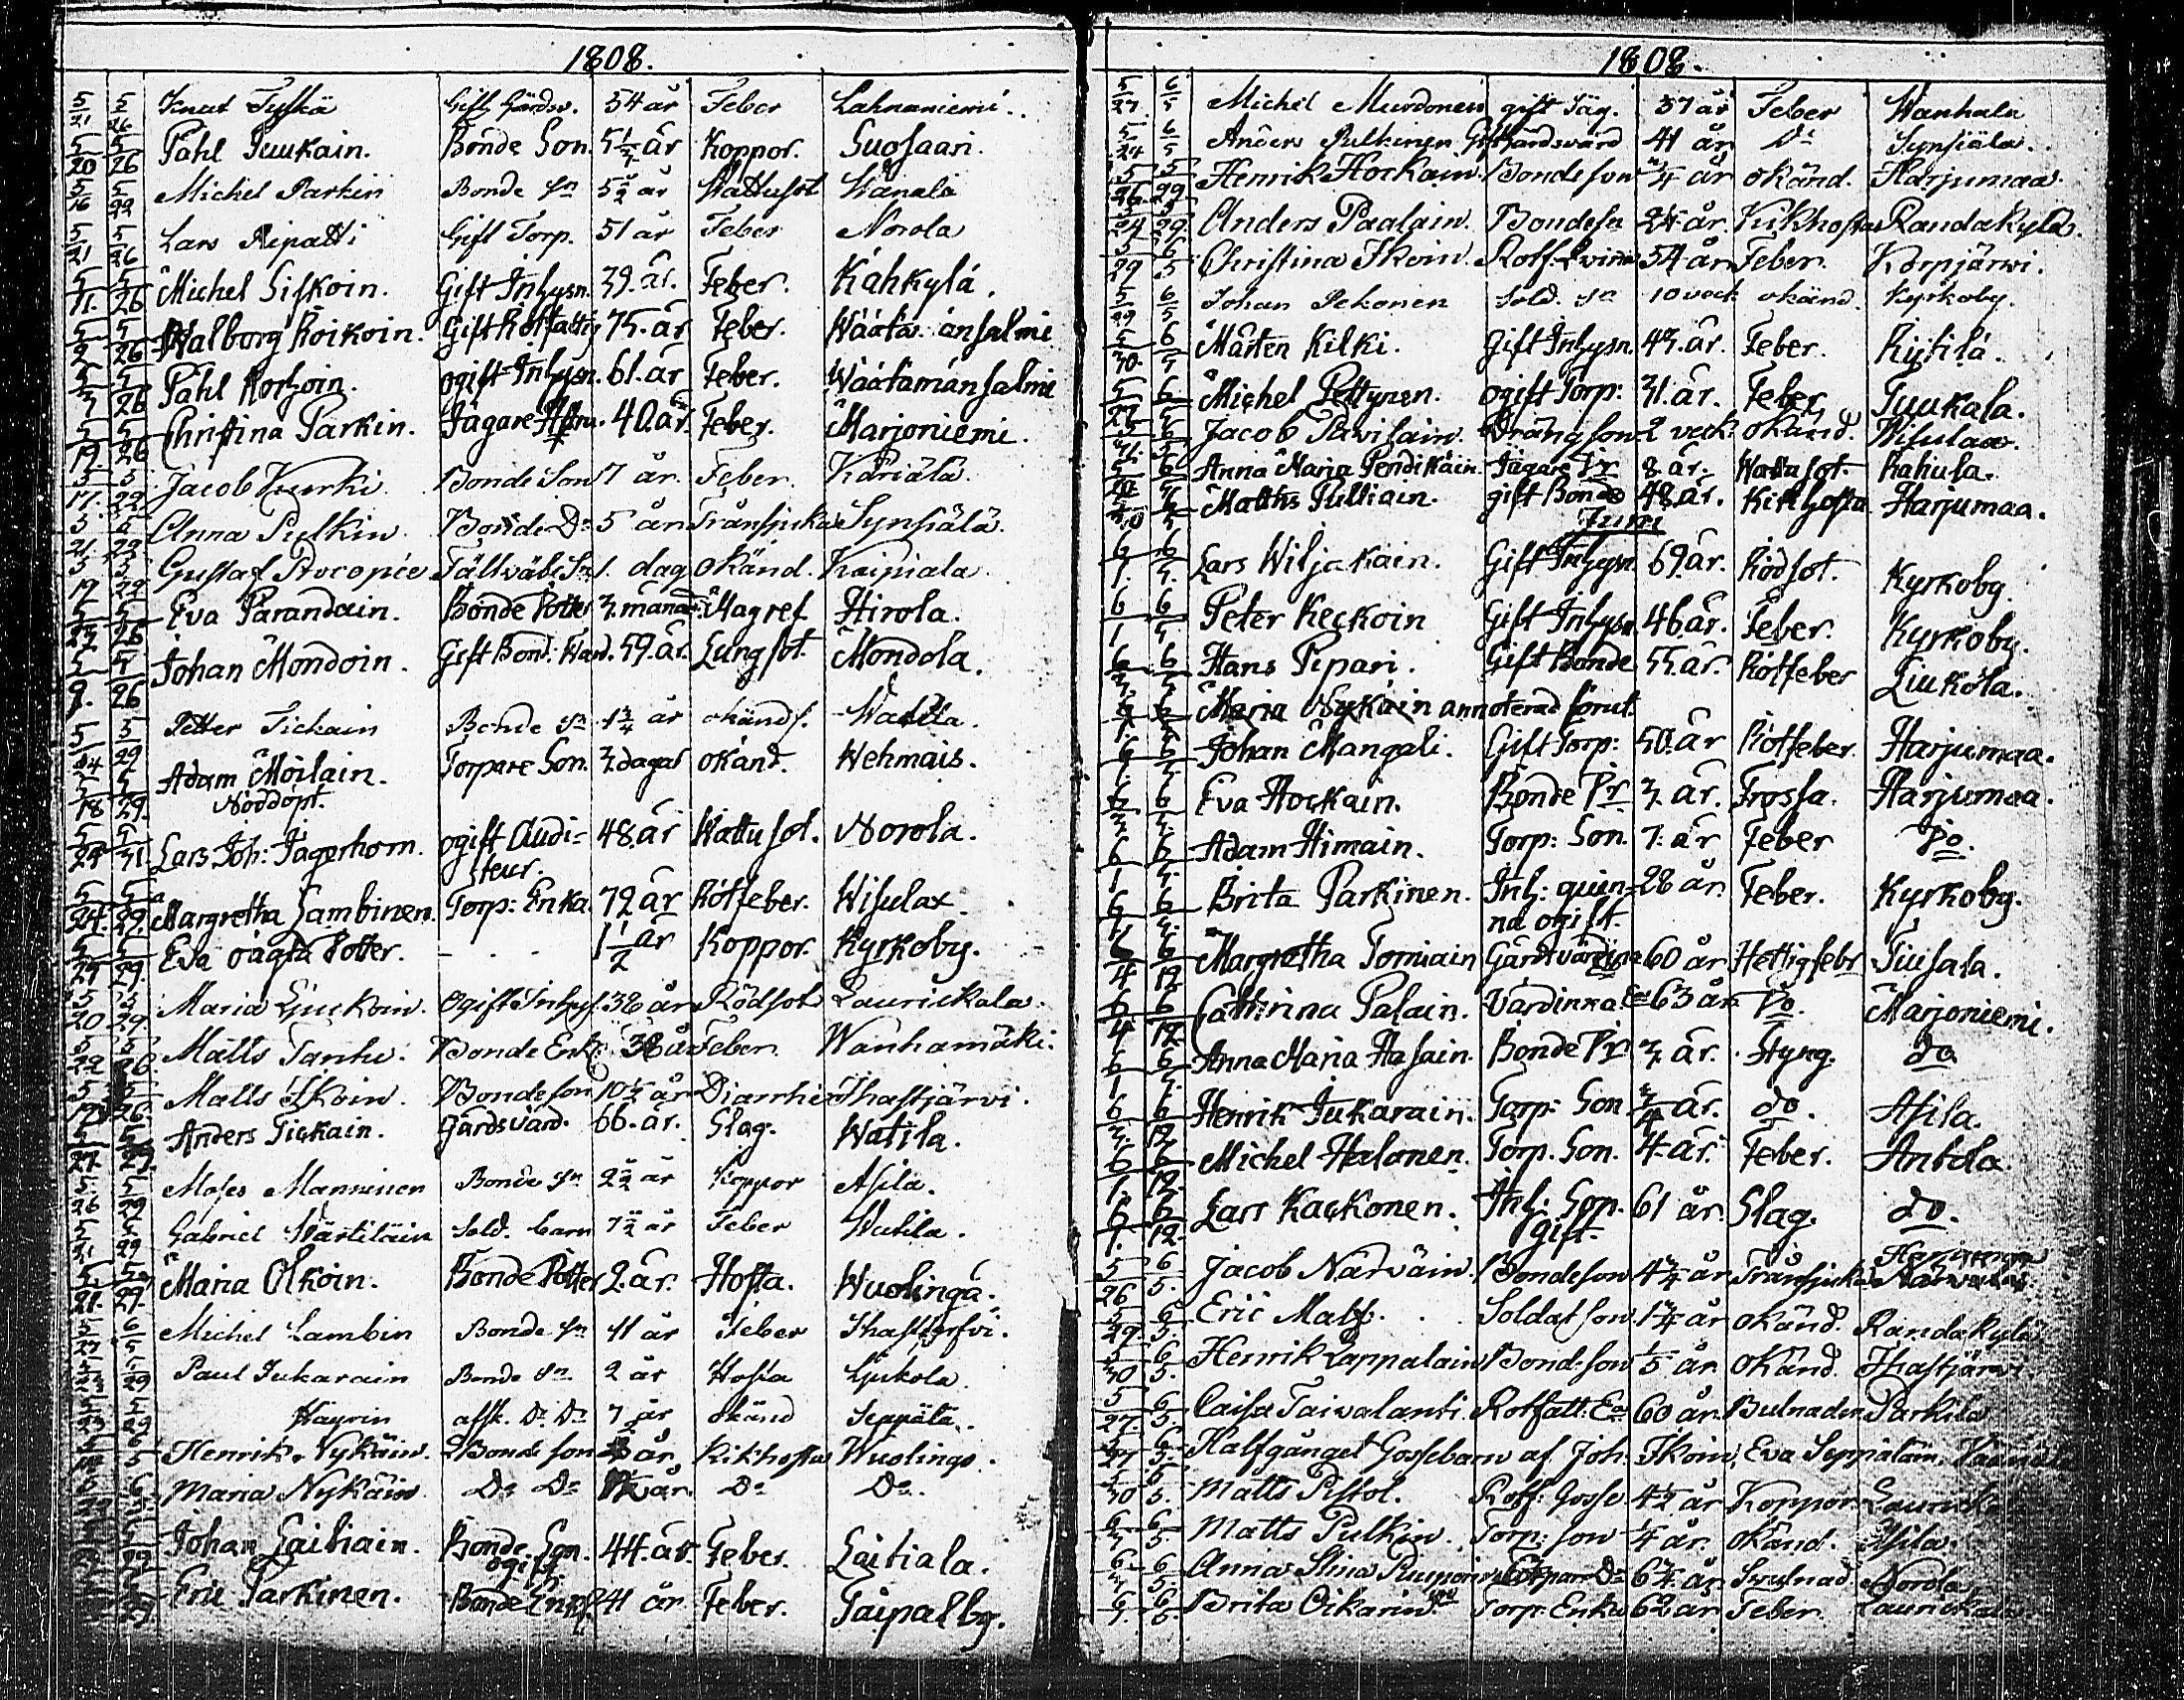 1808.
5/21 5/26 Knut Tyskä Gift Gårdsv. 54 år Feber Lahnaniemi.
5/20 5/26 Påhl Tuukain. Bonde Son. 5 1/2 år Koppor. Suosaari.
5/16 5/22 Michel Parkin Bonde Sn 5 1/2 år Wattusot Wanala
5/21 5/26 Lars Ripatti Gift Torp. 51 år Feber Norola
5/11. 5/26 Michel Siskoin. Gift Inhysn. 39. år. Feber. Kähkylä.
5/9 5/26 Walborg Roikoin. Gift Rotfattig 75. år Feber. Wäätämänsalmi
5/7 5/26 Påhl Korhoin. ogift Inhysn. 61. år Feber. Wäätämänsalmi
5/19 5/26 Christina Parkin. Jägare Hstru. 40. år. Feber. Marjoniemi.
5/17. 5/29 Jacob Kurki Bonde Son 7 år. Feber. Käriälä.
5/21. 5/29 Anna Pulkin Bonde Dr 5 år Trånsjuka Synsiälä.
5/19 5/29 Gustaf Procopée Fältväb: Sn 1. dag okänd. Kaipiala.
5/23 5/26 Eva Parandain. Bonde Dotter 3. månad: Magref Hirola.
5/9. 5/26 Johan Mondoin. Gift Bond: Wärd. 59. år. Lungsot Mondola.
5/24 5/29 Petter Tickain Bonde Sn 1 3/4 år okänd s. Watila.
5/18 5/29. Adam Moilain. Torpare Son. 3. dagar okänd. Wehmais.
Nöddöpt.
5/24 5/31 Lars Joh: Jägerhorn. ogift Audi= 48. år Wattusot. Norola.
teur.
5/24. 5/29. Margretha Lambinen. Torp: Enka. 72 år Rötfeber. Wisulax
5/29 5/29. Eva oägta Dotter. - - - 1 1/2 år Koppor. Kyrkoby.
5/20 5/29. Maria Liuckoin. Ogift Inhys. 36 år Rödsot Laurickala.
5/22 5/26. Matts Tanhu. Bonde Enk: 38 år Feber. Wanhamäki.
5/19 5/26. Matts Ikoin. Bondeson 10 1/2 år Diarrhé Ihastjärvi.
5/27. 5/29. Anders Tickain. Gårdsvärd. 66. år. Slag. Watila.
5/26 5/29 Moses Manninen Bonde Sn 2 1/2 år Koppor Asila.
5/21 5/29 Gabriel Wärtiläin Sold. barn 7 1/2 år Feber Watila.
5/21. 5/29. Maria Olkoin. Bonde Dotter 2. år. Hosta. Wuolingå.
5/27 6/5 Michel Lambin Bonde Sn 11 år Feber Ihastjerfvi.
5/23 5/29 Paul Jukarain Bonde Sn 2 år Hosta Liukola.
5/23 5/29 Häyrin afsk. Dr. Dr 7 år okänd Seppälä.
6/5 Henrik Nykäin. Bonde son år, Kikhosta Wuolingo.
Maria Nykäin. Do Dr år. Do Do.
5/29 Johan Laitiain. Bonde Son. 44. år. Feber. Laitiala.
ogift.
Eric Parkinen. Bonde Enkl. 41 år Feber. Taipalby.
1808.
5/27. 6/5 Michel Muodonen gift Jäg. 37 år Feber Wanhala
5/24 6/5 Anders Pulkinen Gift Gårdsvärd 41 år Do Synsiälä.
5/26. 5/29. Henrik Hockain. Bondeson 3/4 år okänd. Harjumaa.
5/24 5/29. Anders Paalain. Bondesn 2 1/2 år. Kikhosta Randakylä.
5/29 6/5 Christina Ikoin. Rotf. Qvinna 54 år Feber. Korpjärwi.
5/29 6/5 Johan Pekonen Sold. Sn 10 veck okänd. Kyrkoby.
5/30. 6/5 Mårten Kilki. Gift Inhysn. 43. år. Feber. Rytilä.
5/27 6/5 Michel Pettynen. ogift Torp: 31. år. Feber Tuukala.
5/31. 6/5 Jacob Pavisain. Dräng son 2 veck: okänd. Wisulax.
5/30 6/5 Anna Maria Pendikäin. Jägare Dr 8. år. Wattusot. Rahula.
5/30 6/5 Matths Pulliain. gift Bonde 48. år. Kikhosta Harjumaa.
Juni
6/1. 6/5. Lars Wiljakain. Gift Inhysn. 69. år. Rödsot. Kyrkoby.
6/1 6/5. Peter Keckoin Gift Inhysn. 46. år. Feber. Kyrkoby.
6/3. 6/5 Hans Pipari. Gift Bonde 55. år. Rötfeber Liukola.
Maria Nykäin annoterad förut.
6/1. 6/5 Johan Mangali. Gift Torp: 50. år Rötfeber. Harjumaa.
6/3 6/5. Eva Hockain. Bonde Dr 3. år. Frossa. Harjumaa.
6/1 6/5. Adam Himain. Torp: Son. 7. år Feber Do.
6/1. 6/5. Brita Parkinen. Inh: quin= 28 år. Feber. Kyrkoby.
na ogift.
6/4 6/12 Margretha Torniain Gårdsvärdina 60 år Hettig febr Tiusala.
6/4 6/12 Cathrina Palain. Värdinna Ea 63 år. Do. Marjoniemi.
6/1 6/5. Anna Maria Hasain. Bonde Dr 3. år. Styng. do
6/3. 6/12. Henrik Jukarain. Torp: Son 3/4 år. do. Asila.
6/1. 6/12. Michel Halonen. Torp. Son. 4. år. Feber. Antola.
6/1. 6/12. Lars Kackonen. Inh: Son. 61 år. Slag. do.
gift.
5/26 6/5. Jacob Närväin. Bondeson 4 1/4 år Trånsjuka Harjumaa
5/29. 6/5. Eric Malf. . . Soldat son. 1 3/4 år okänd. Randakylä.
5/30 6/5. Henrik Lappalain Bondeson 1/5 år. okänd. Ihastjärwi
5/27. 6/5. Caisa Taivalanti. Rotfatt: Ea 60 år. Bulnader Parkila
5/27 6/5. Halfgånget Gossebarn af Joh: Ikoin, Eva Seppäläin.
5/30 6/5. Matts Pistol. Rotf: Gosse. 4 1/2 år Koppor.
6/3 6/5. Matts Pulkin. Torp: son 1/4 år. okänd. Asila.
6/3 6/5. Anna Stina Torpare Dr 6 3/4 år Swulnad. Norola.
6/1. 6/5. Brita Oikarin. Torp: Enka 62 år Feber. Laurickala